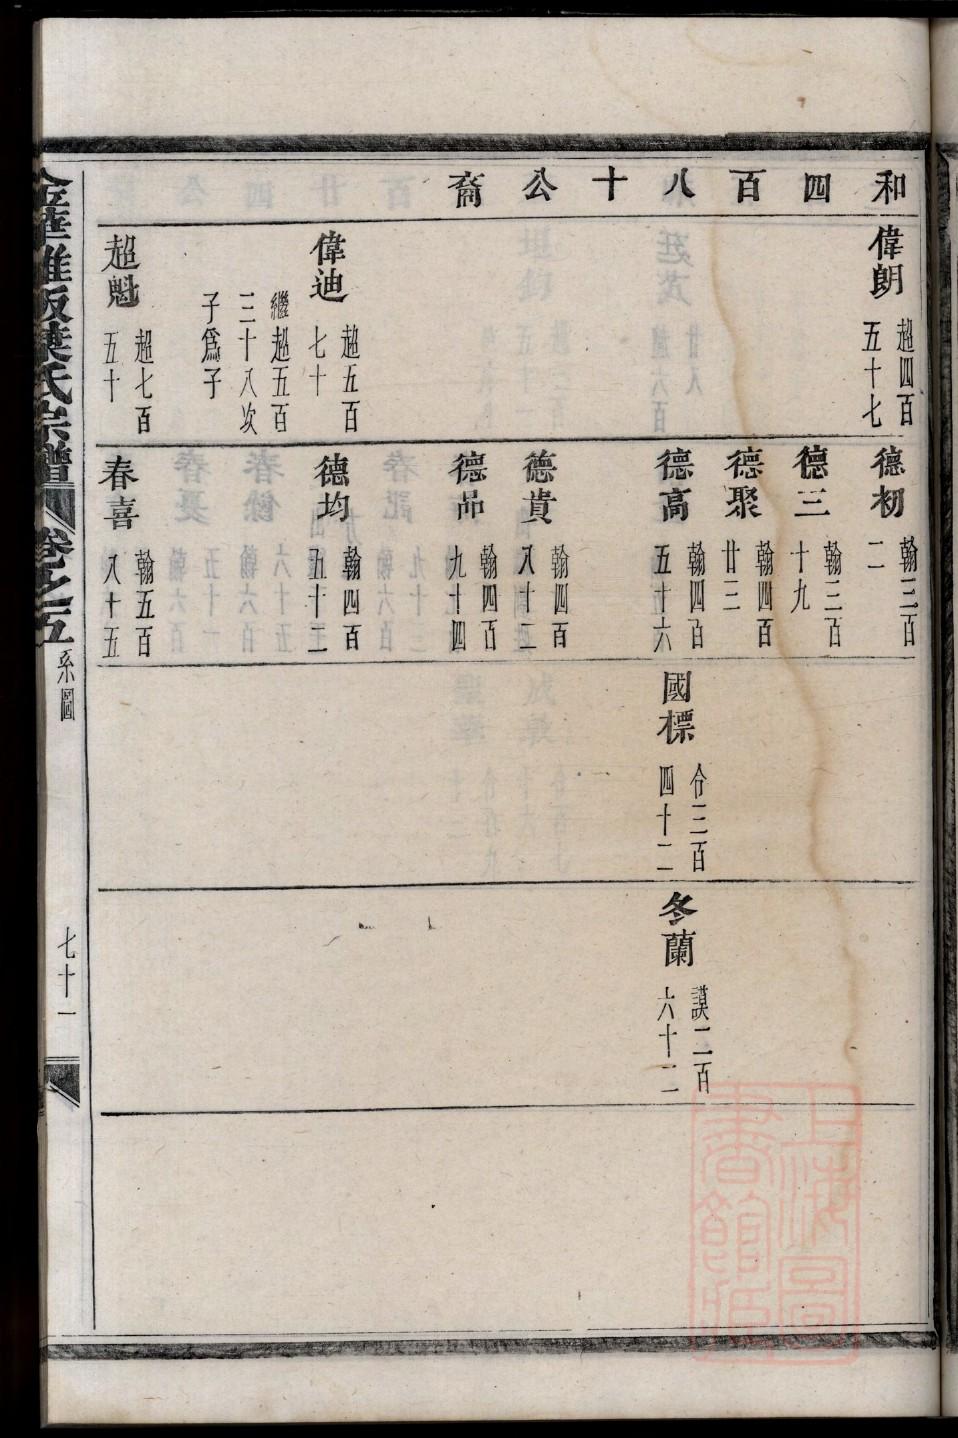 和四百八十公裔
偉朗 超四百五十七
偉迪 超五百七十
繼超五百三十八次子爲子
超魁 超七百五十
德初 翰三百二
德三 翰三百十九
德聚 翰四百廿三
德高 翰四百五十六
德貴 翰四百八十二
德昂 翰四百九十四
德均 翰四百五十三
春喜 翰五百八十五
國標 令三百四十二
冬蘭 謨二百六十二
葉氏宗譜
卷之五
系圖
七十一
上海圖書館藏